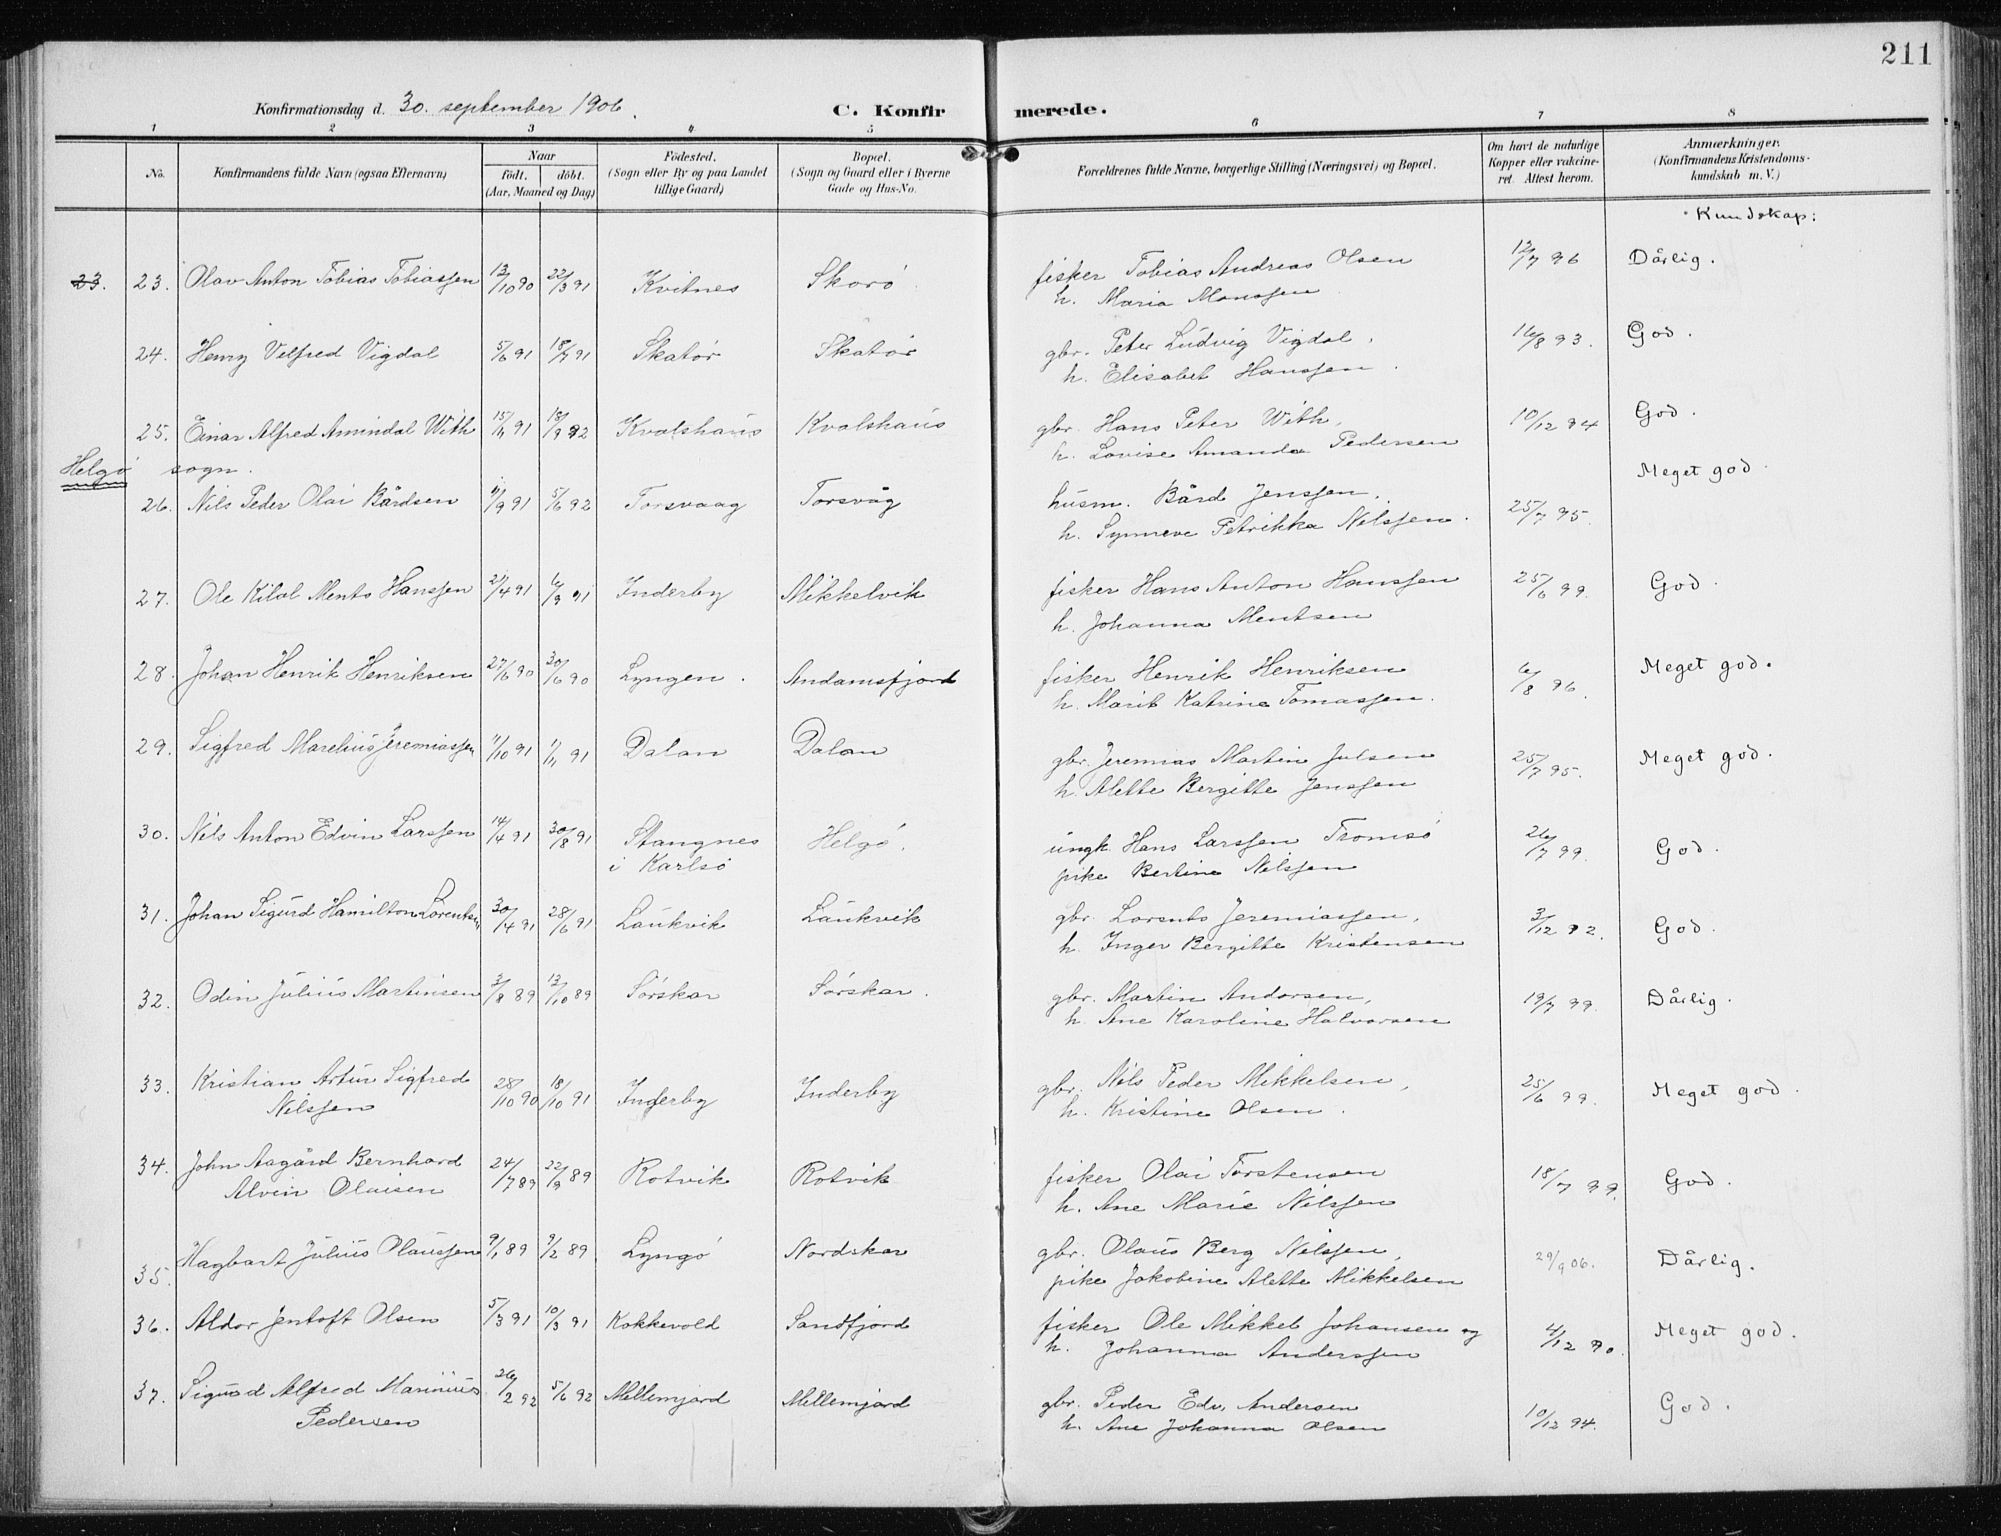 211
Konfirmationsdag d. 30. september 1906. C. Konfirmerede.
1 2 3 4 5 6 7 8
No. Konfirmandens fulde Navn (ogsaa Efternavn) Naar födt. döbt. (Aar, Maaned og Dag) Födested. (Sogn eller By og paa Landet tillige Gaard) Bopæl. (Sogn og Gaard eller i Byerne Gade og Hus-No. Forældrenes fulde Navne, borgerlige Stilling (Næringsvei) og Bopæl. Om havt de naturlige Kopper eller vakcineret. Attest herom. Anmærkninger. (Konfirmandens Kristendomskundskab m. V.)
Kundskap:
23. 23. Olav Anton Tobias Tobiassen 13/10 90 22/3 91 Kvitnes Skorö fisker Tobias Andreas Olsen 12/7 96 Dårlig.
h. Maria Monssen
24. Henry Velfred Vigdal 5/6 91 18/7 91 Skatør Skatør gbr. Peter Ludvig Vigdal, 16/8 93. God.
h. Elisabet Hanssen.
25. Einar Alfred Amindal With 15/11 91 18/9 92 Kvalshaus Kvalshaus gbr. Hans Peter With, 10/12 94 God.
h. Lovise Amanda Pedersen
Helgö sogn.
26. Nils Peder Olai Bårdsen 11/9 91 5/6 92 Torsvaag Torsvåg husm. Bård Jenssen, 25/7 95. Meget god.
h. Synneve Petrikka Nilssen.
27. Ole Kilal Ments Hanssen 21/4 91 6/9 91 Inderby Mikkelvik fisker Hans Anton Hanssen 25/6 99. God.
h. Johanna Mentsen
28. Johan Henrik Henriksen 27/6 90 30/6 90 Lyngen. Andamsfjord fisker Henrik Henriksen 6/8 96. Meget god.
h. Marit Katrine Tomassen.
29. Sigfred Marelius Jeremiassen 11/10 91 1/11 91 Dalan Dalan gbr. Jeremias Martin Julsen 25/7 95. Meget god.
h. Alette Bergitte Jenssen
30. Nils Anton Edvin Larssen 14/4 91 30/8 91 Stangnes i Karlsö Helgö. ungk. Hans Larssen Tromsö 26/7 99. God.
pike Bertine Nilssen
31. Johan Sigurd Hamilton Lorentsen 30/4 91 28/6 91 Laukvik Laukvik gbr. Lorents Jeremiassen, 3/12 92. God.
h. Inger Bergitte Kristensen
32. Odin Julius Martinsen 3/8 89 13/10 89 Sørskar Sørskar. gbr. Martin Andorsen, 19/7 99. Dårlig.
h. Ane Karoline Halvorsen
33. Kristian Artur Sigfred 28/10 90 18/10 91 Inderby Inderby gbr. Nils Peder Mikkelsen, 25/6 99. Meget god.
Nilssen h. Kristine Olsen.
34. John Aagård Bernhard 24/7 89 22/9 89 Rotvik Rotvik fisker Olai Torstensen 18/7 99. God.
Alvin Olaisen h. Ane Marie Nilssen
35. Hagbart Julius Olaussen 9/1 89 9/2 89 Lyngö Nordskar gbr. Olaus Berg Nilssen, 29/9 06. Dårlig.
pike Jakobine Alette Mikkelsen
36. Aldor Jentoft Olsen 5/3 91 10/3 91 Kokkevold Sandfjord fisker Ole Mikkel Johansen og 4/12 90. Meget god.
h. Johanna Anderssen
37. Sigurd Alfred Marinius 26/2 92 5/6 92 Mellemjord Mellemjord gbr. Peder Edv. Andersen 10/12 94. God.
Pedersen h. Ane Johanna Olsen